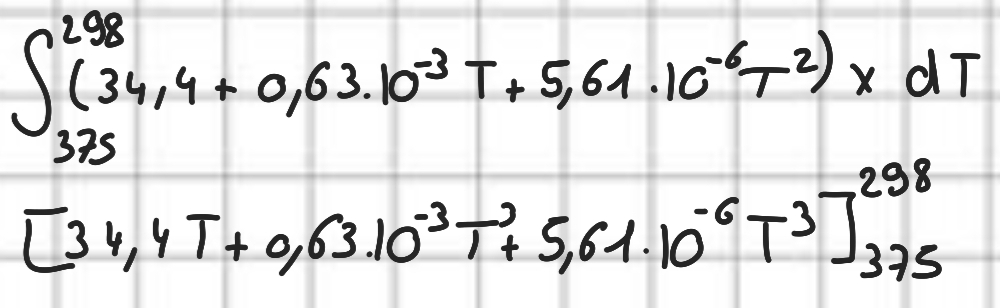 ∫₃₇₅²⁹⁸ (34,4 + 0,63.10⁻³ T + 5,61.10⁻⁶ T²) x dT
[34,4 T + 0,63.10⁻³ T² + 5,61.10⁻⁶ T³]₃₇₅²⁹⁸